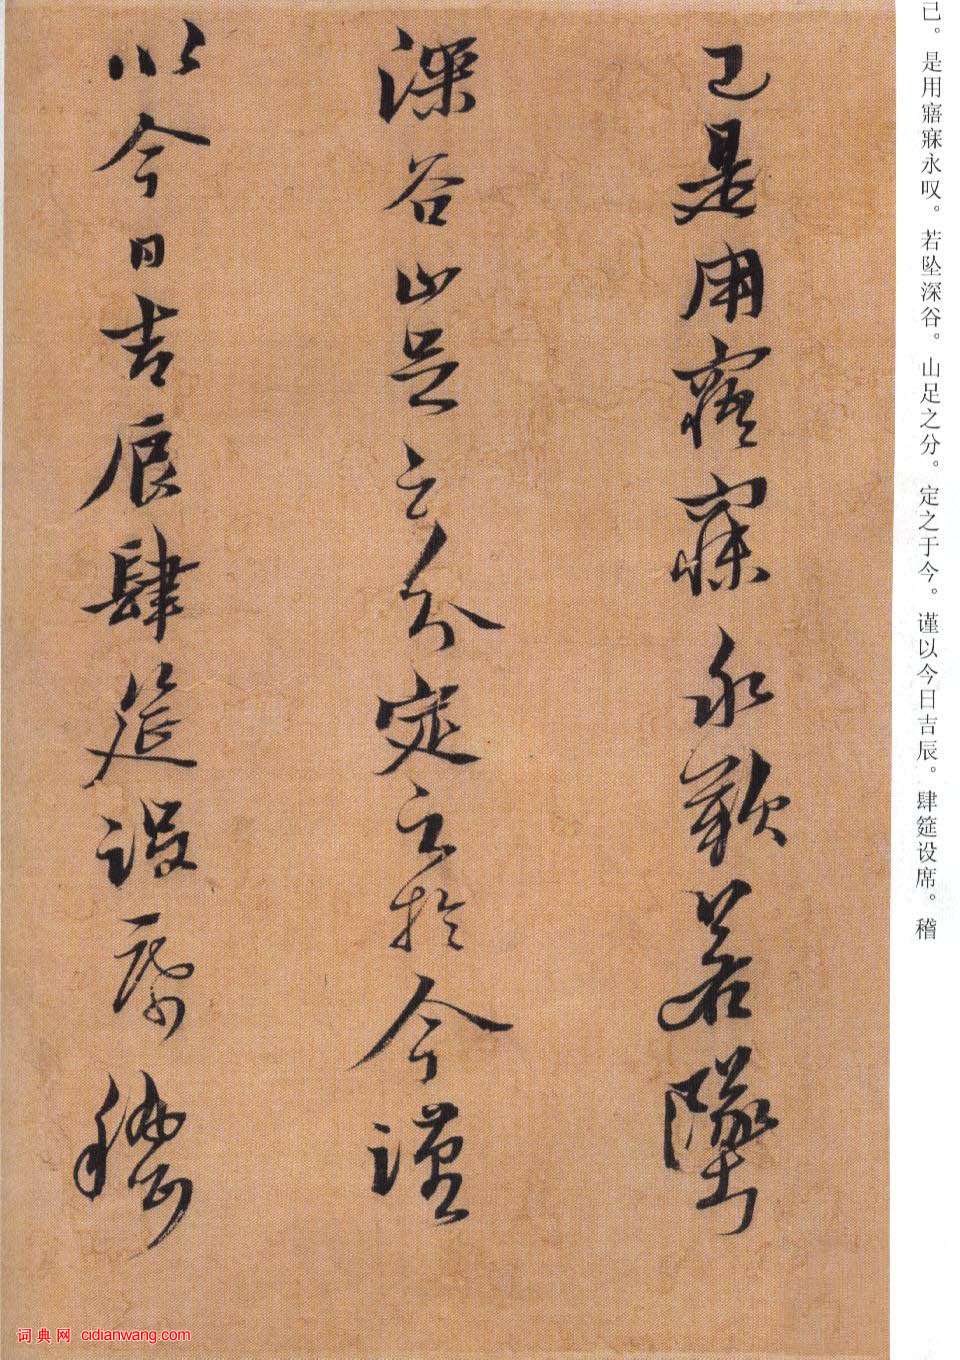 已。是用寤寐永叹。若坠深谷。山足之分。定之于今。谨以今日吉辰。肆筵设席。稽
已是用寤寐永歎若墜
深谷山足之分定之於今謹
以今日吉辰肆筵設席稽
词典网 cidianwang.com